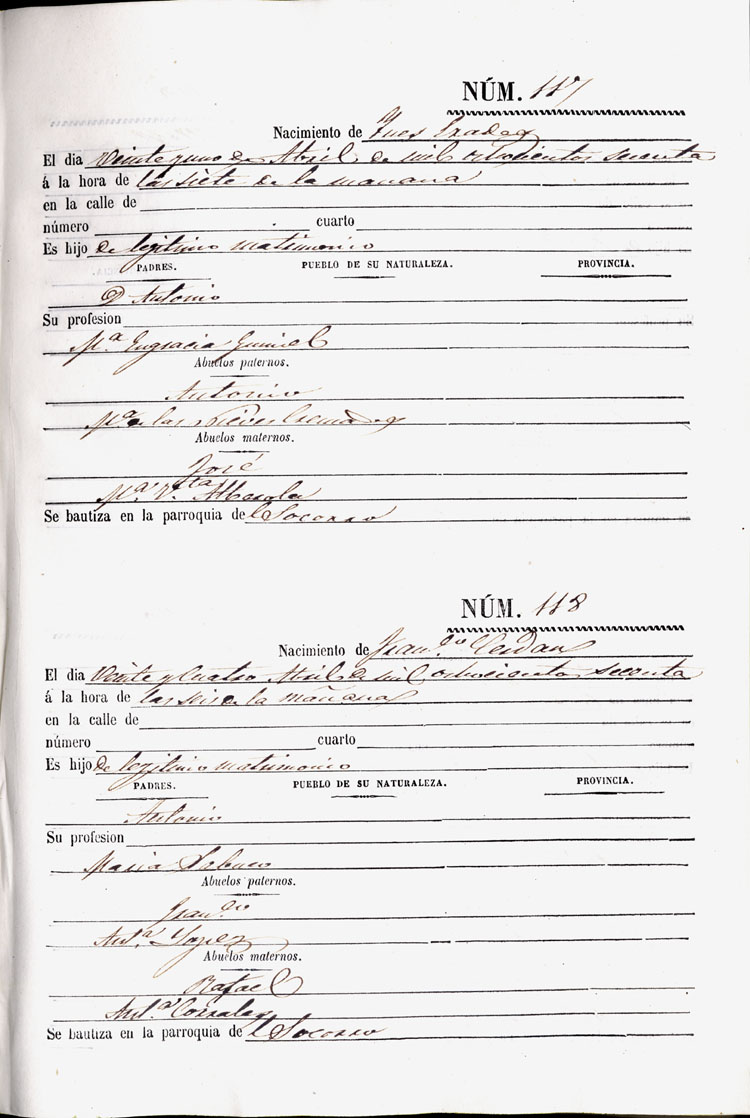 NÚM. 117
Nacimiento de Ynes Pradez
El dia Veinte y uno de Abril de mil ochocientos secenta
á la hora de las siete de la mañana
en la calle de
número cuarto
Es hijo de legitimo matrimonio
PADRES. PUEBLO DE SU NATURALEZA. PROVINCIA.
D Antonio
Su profesion
Mª Engracia
Abuelos paternos.
Antonio
Mª de las Nieves
Abuelos maternos.
José
Mª Vta Alberola
Se bautiza en la parroquia del Socorro
NÚM. 118
Nacimiento de Franco Cerdan
El dia Veinte y Cuatro Abril de mil ochocientos secenta
á la hora de las seis de la mañana
en la calle de
número cuarto
Es hijo de legitimo matrimonio
PADRES. PUEBLO DE SU NATURALEZA. PROVINCIA.
Antonio
Su profesion
Maria
Abuelos paternos.
Franco
Antª Lopez
Abuelos maternos.
Rafael
Antª Corrales
Se bautiza en la parroquia del Socorro